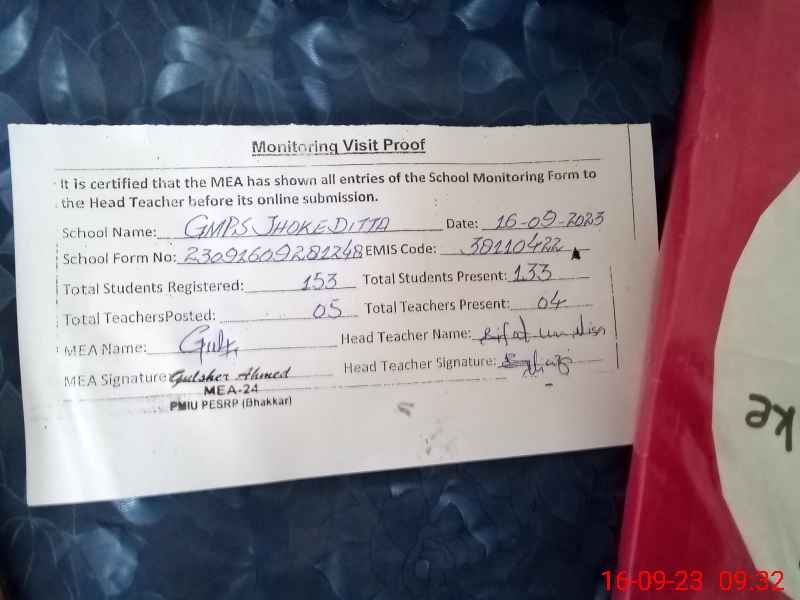 Monitoring Visit Proof
It is certified that the MEA has shown all entries of the School Monitoring Form to
the Head Teacher before its online submission.
School Name: GMPS JHOKE DITTA Date: 16-09-2023
School Form No: 23091609281248 EMIS Code: 38110422
Total Students Registered: 153 Total Students Present: 133
Total TeachersPosted: 05 Total Teachers Present: 04
MEA Name: Head Teacher Name: Rifat un Nisa
MEA Signature Gulsher Ahmed Head Teacher Signature:
MEA-24
PMIU PESRP (Bhakkar)
ke
16-09-23 09:32